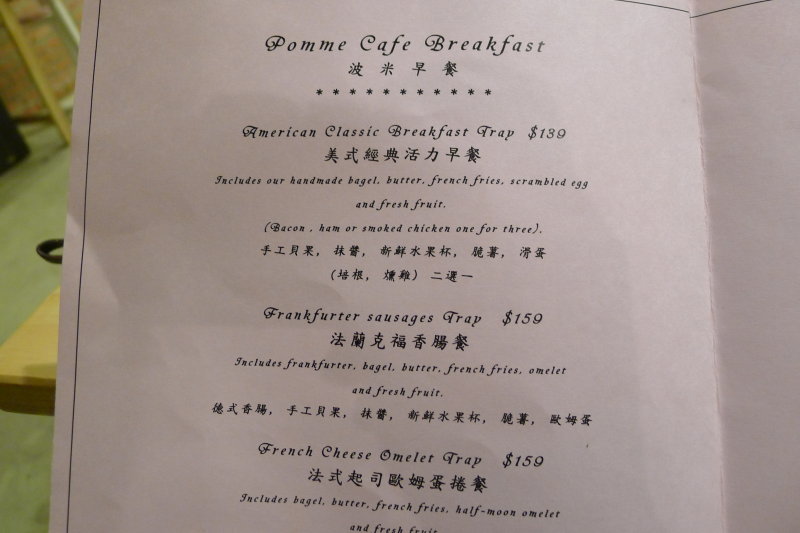 Pomme Cafe Breakfast
波米早餐
* * * * * * * * * * *
American Classic Breakfast Tray $139
美式經典活力早餐
Includes our handmade bagel, butter, french fries, scrambled egg
and fresh fruit.
(Bacon , ham or smoked chicken one for three).
手工貝果, 抹醬, 新鮮水果杯, 脆薯, 滑蛋
(培根, 燻雞) 二選一
Frankfurter sausages Tray $159
法蘭克福香腸餐
Includes frankfurter, bagel, butter, french fries, omelet
and fresh fruit.
德式香腸, 手工貝果, 抹醬, 新鮮水果杯, 脆薯, 歐姆蛋
French Cheese Omelet Tray $159
法式起司歐姆蛋捲餐
Includes bagel, butter, french fries, half-moon omelet
and fresh fruit.